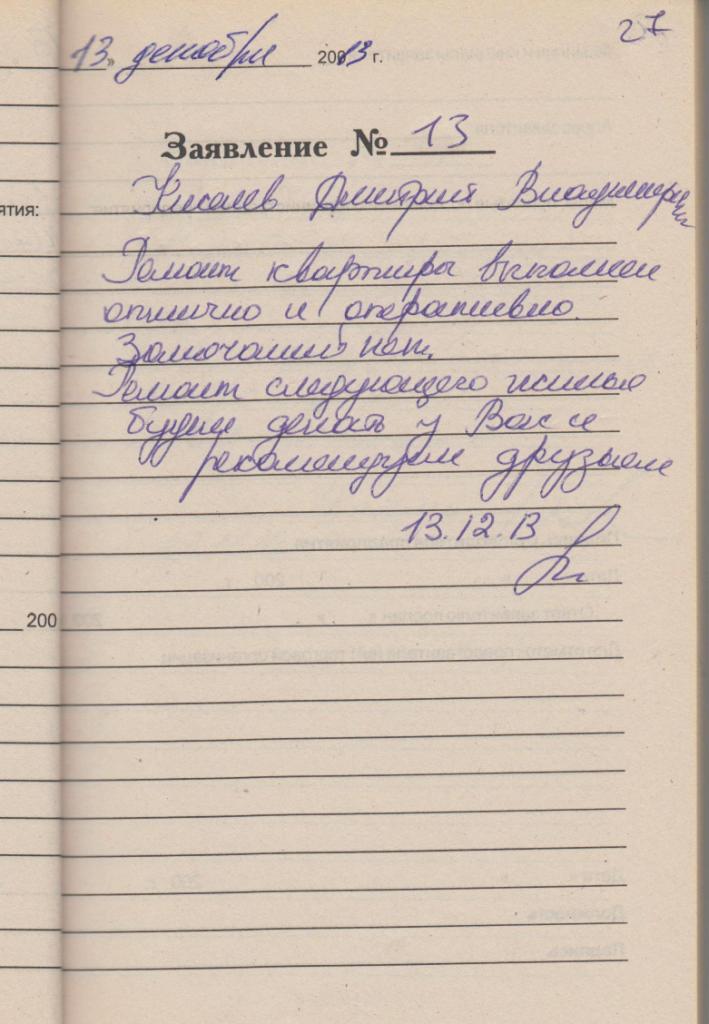 27
13» декабря 20013 г.
Заявление № 13
Киселев Дмитрий Владимирович
ятия:
Ремонт квартиры выполнен
отлично и оперативно.
Замечаний нет.
Ремонт следующего жилья
будем делать у Вас и
рекомендуем друзьям
13.12.13
200